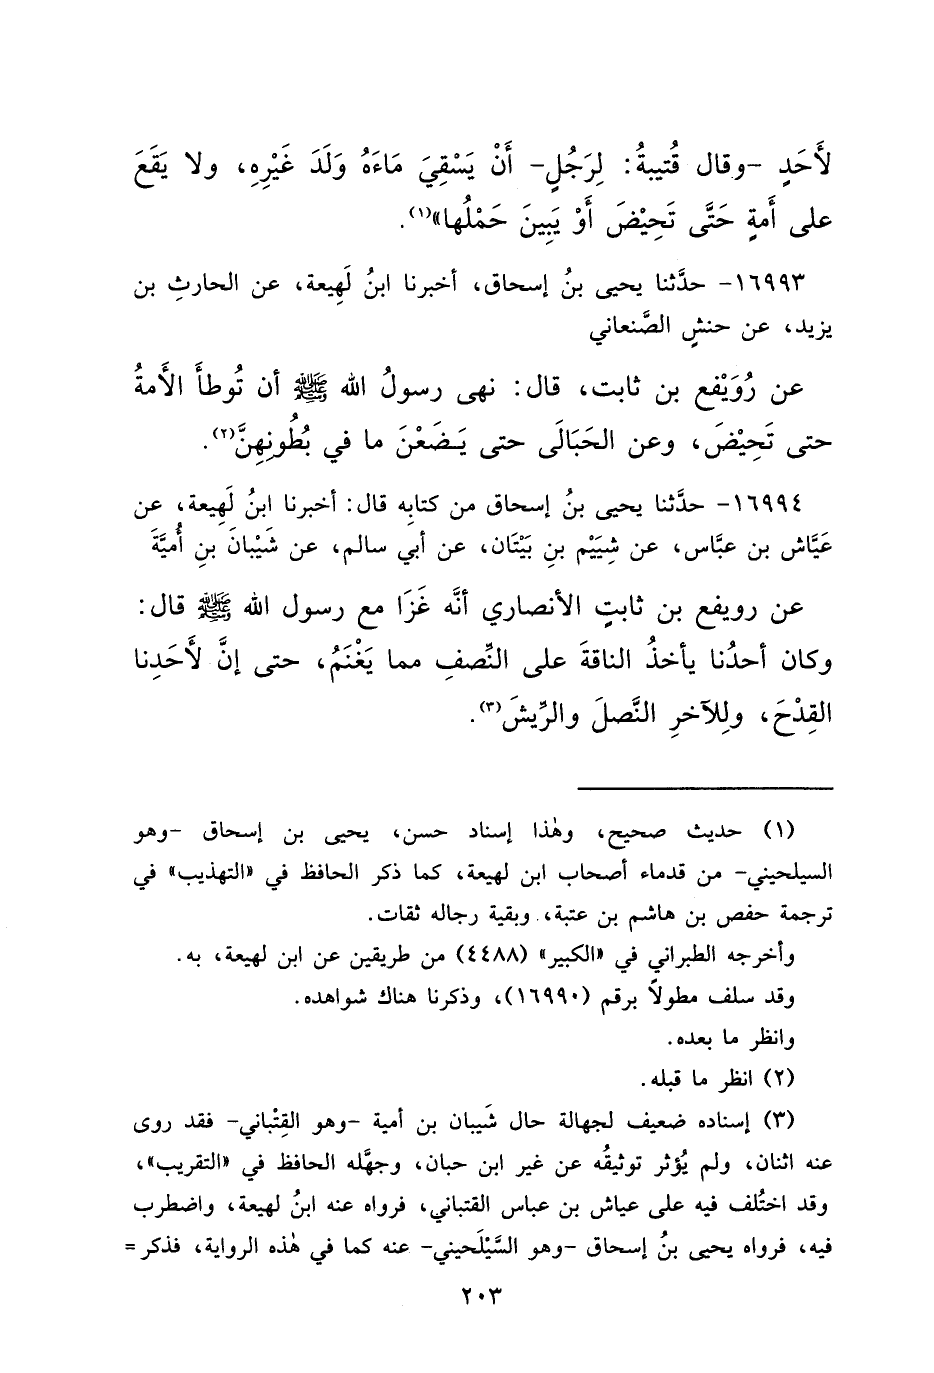 لأَحَدٍ -وقال قُتيبةُ: لِرَجُلٍ- أَنْ يَسْقِيَ مَاءَهُ وَلَدَ غَيْرِهِ، ولا يَقَعَ
على أَمةٍ حَتَّى تَحِيْضَ أَوْ يَبِينَ حَمْلُها»(١).
١٦٩٩٣- حدَّثنا يحيى بنُ إسحاق، أخبرنا ابنُ لَهِيعة، عن الحارثِ بن
يزيد، عن حنشٍ الصَّنعاني
عن رُوَيْفع بن ثابت، قال: نهى رسولُ الله ﷺ أن تُوطأَ الأمةُ
حتى تَحِيْضَ، وعن الحَبَالَى حتى يَضَعْنَ ما في بُطُونِهِنَّ(٢).
١٦٩٩٤- حدَّثنا يحيى بنُ إسحاق من كتابِه قال: أخبرنا ابنُ لَهِيعة، عن
عَيَّاش بن عبَّاس، عن شِيَيْم بنِ بَيْتَان، عن أبي سالم، عن شَيْبانَ بنِ أُميَّةَ
عن رويفع بن ثابتٍ الأنصاري أنَّه غَزَا مع رسول الله ﷺ قال:
وكان أحدُنا يأخذُ الناقةَ على النِّصفِ مما يَغْنَمُ، حتى إنَّ لأَحَدِنا
القِدْحَ، وللآخرِ النَّصلَ والرِّيشَ(٣).
(١) حديث صحيح، وهٰذا إسناد حسن، يحيى بن إسحاق -وهو
السيلحيني- من قدماء أصحاب ابن لهيعة، كما ذكر الحافظ في «التهذيب» في
ترجمة حفص بن هاشم بن عتبة، وبقية رجاله ثقات.
وأخرجه الطبراني في «الكبير» (٤٤٨٨) من طريقين عن ابن لهيعة، به.
وقد سلف مطولاً برقم (١٦٩٩٠)، وذكرنا هناك شواهده.
وانظر ما بعده.
(٢) انظر ما قبله.
(٣) إسناده ضعيف لجهالة حال شَيبان بن أمية -وهو القِتْباني- فقد روى
عنه اثنان، ولم يُؤثر توثيقُه عن غير ابن حبان، وجهَّله الحافظ في «التقريب»،
وقد اختُلف فيه على عياش بن عباس القتباني، فرواه عنه ابنُ لهيعة، واضطرب
فيه، فرواه يحيى بنُ إسحاق -وهو السَّيْلَحيني- عنه كما في هٰذه الرواية، فذكر =
٢٠٣